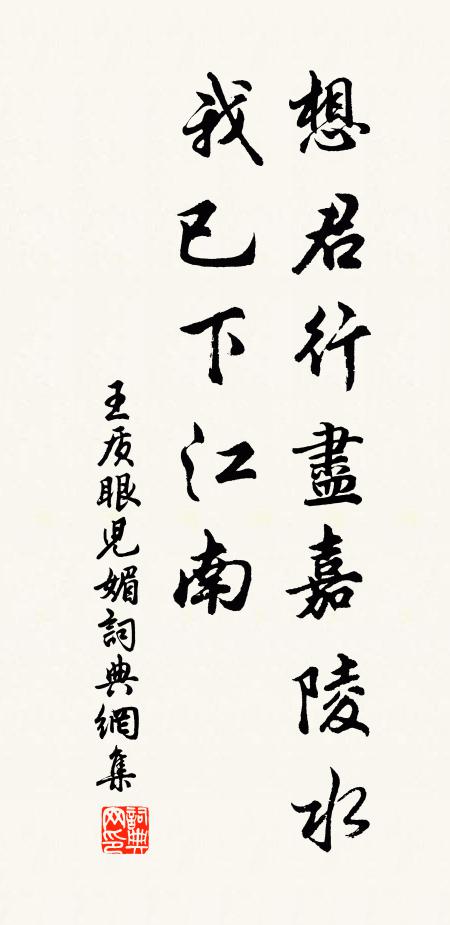 想君行盡嘉陵水
我已下江南
王质眼児媚詞典網集
詞典网印